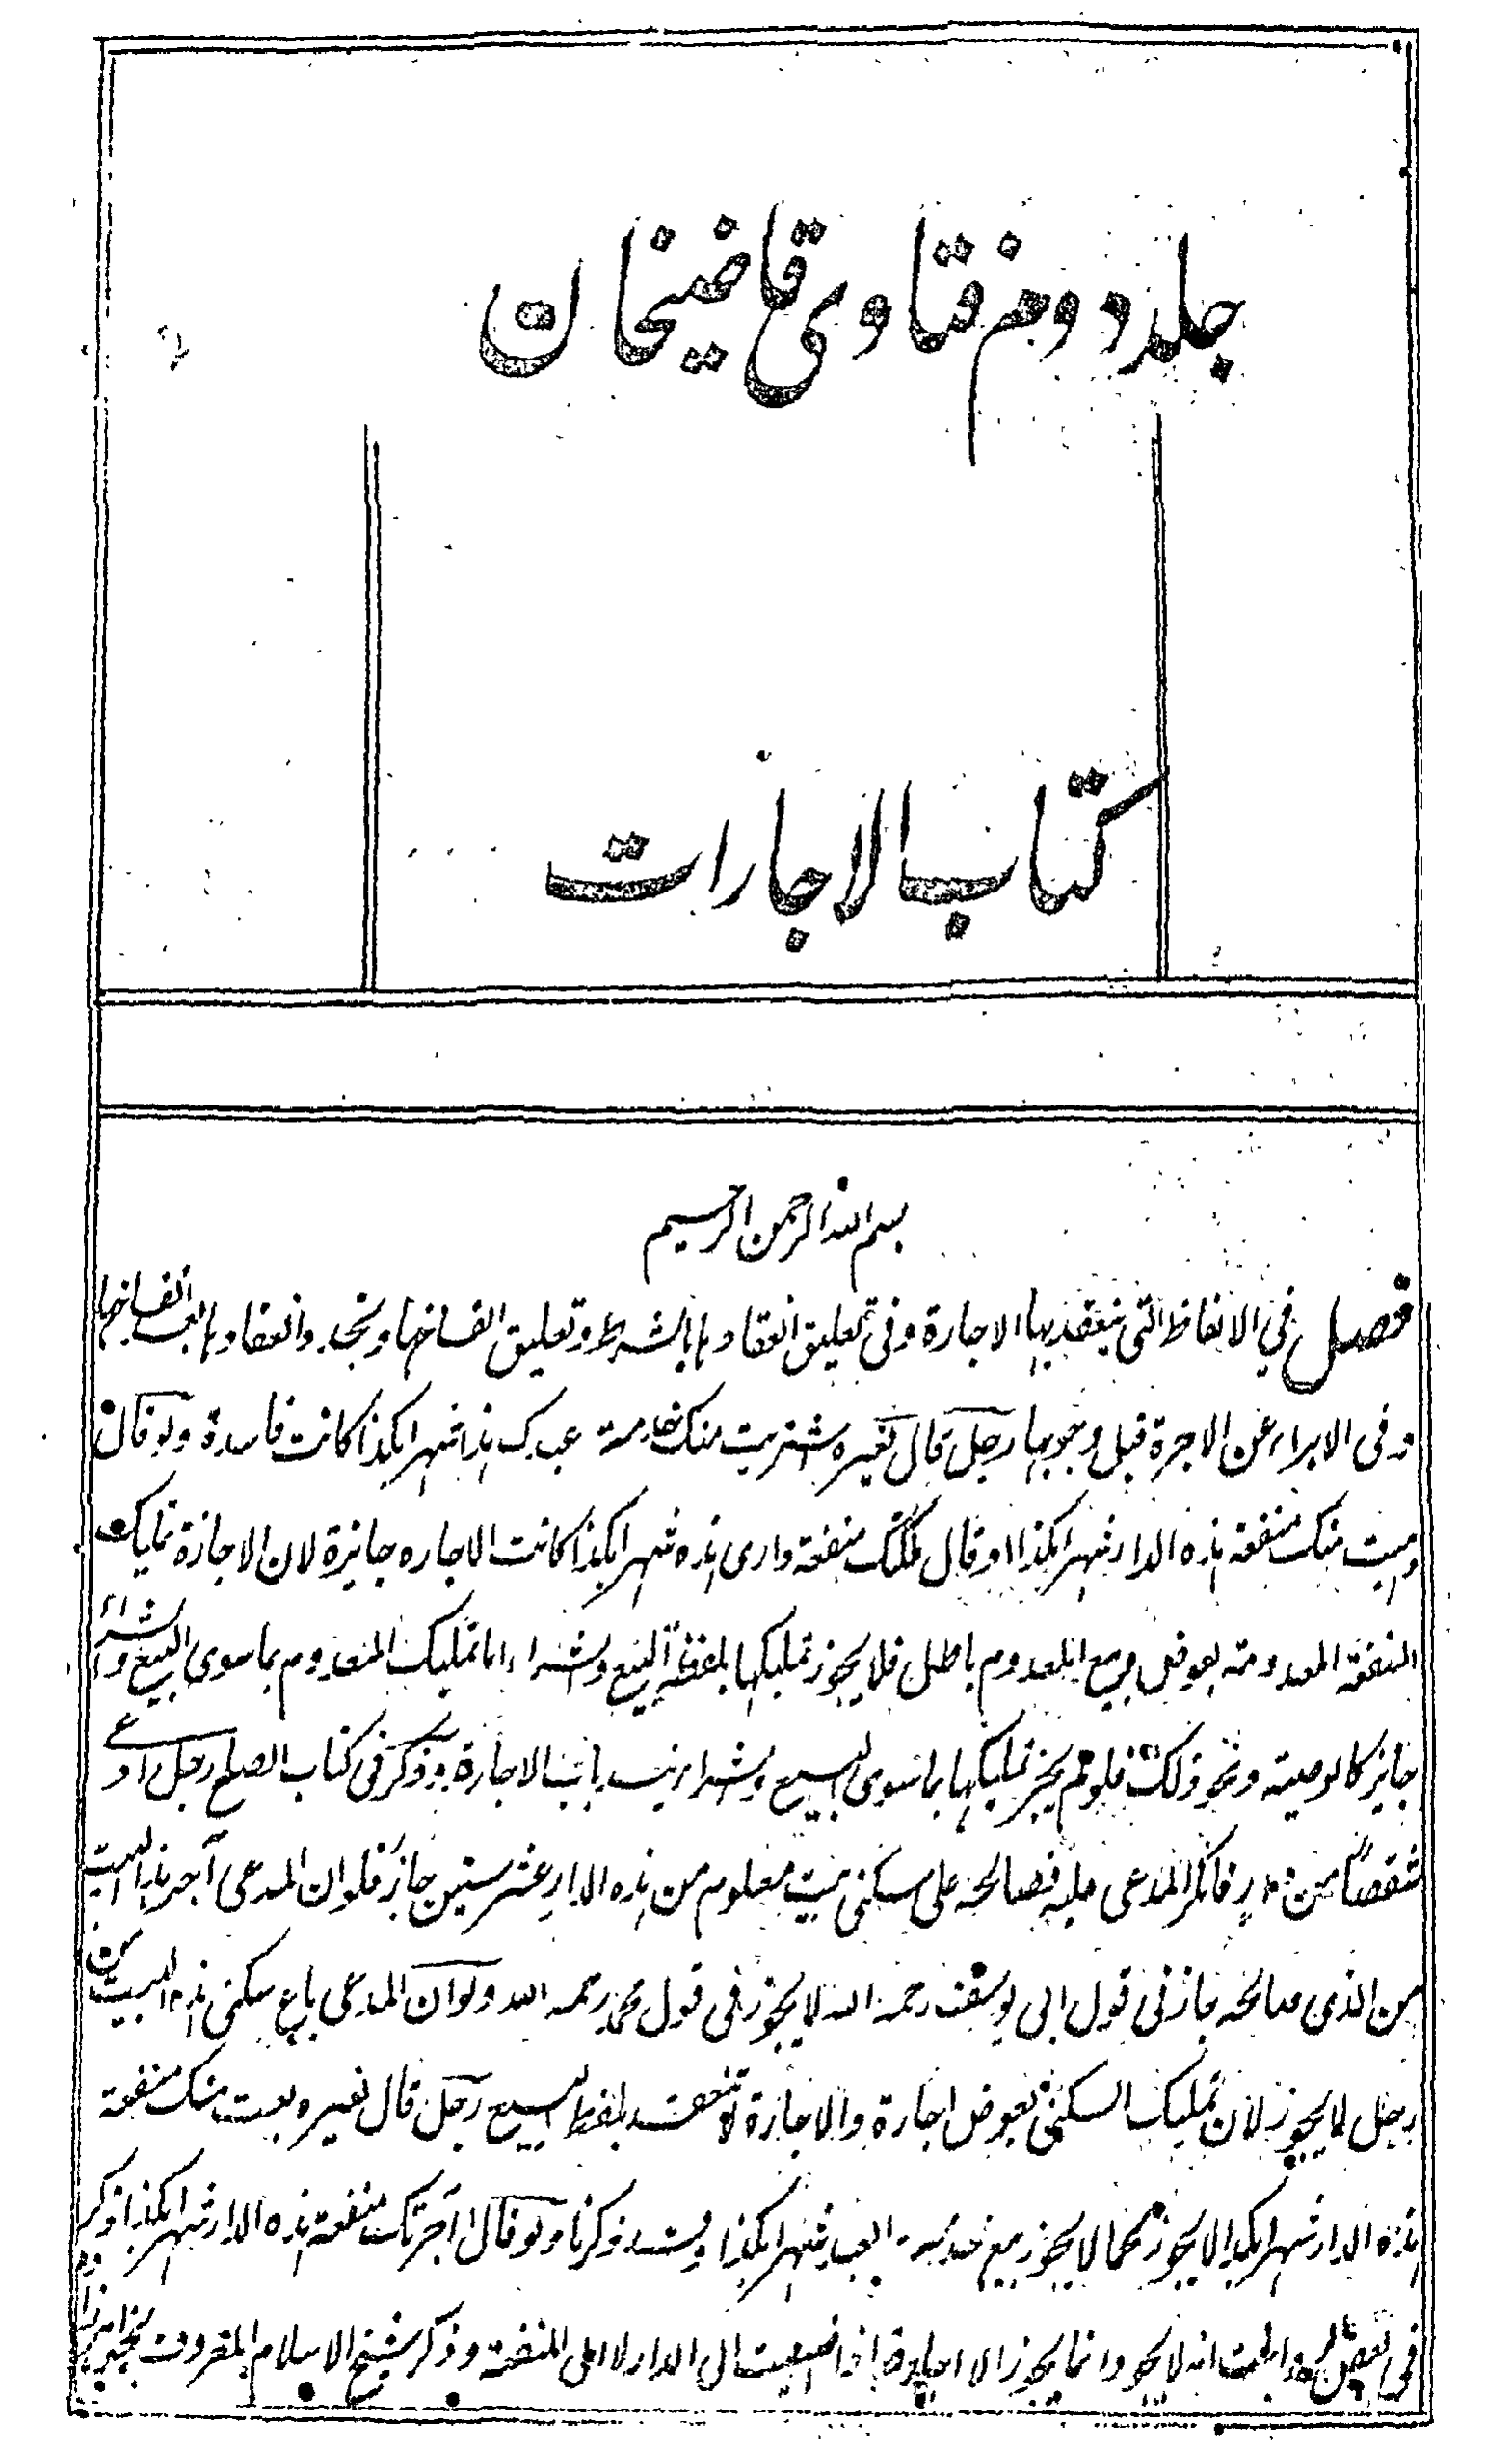 جلد دوم من فتاوى قاضيخان
كتاب الاجارات
بسم الله الرحمن الرحيم
فصل في الالفاظ التي ينعقد بها الاجارة وفي تعليق انعقادها بالشرط وتعليق انفساخها وتجدد انعقادها بعد انفساخها
وفى الابراء عن الاجرة قبل وجوبها رجل قال لغيره اشتريت منك خدمة عبدك هذا شهرا بكذا كانت فاسدة ولو قال
وهبت منك منفعة هذه الدار شهرا بكذا او قال ملكتك منفعة دارى هذه شهرا بكذا كانت الاجاره جايزة لان الاجازة تمليك
المنفعة المعدومة بعوض وبيع المعدوم باطل فلا يجوز تمليكها بلفظة البيع والشراء اما تمليك المعدوم بما سوى البيع والشراء
جايز كالوصية ونحو ذلك فلو لم يجز تمليكها بما سوى البيع والشراء ينسد باب الاجارة وذكر فى كتاب الصلح رجل ادعى
شقصا من دار فانكر المدعى عليه فصالحه على سكنى بيت معلوم من هذه الدار عشر سنين جاز فلو ان المدعى آجر هذا البيت
من الذى صالحه جاز فى قول ابى يوسف رحمه الله لا يجوز فى قول محمد رحمه الله ولو ان المدعى باع سكنى هذا البيت من
رجل لا يجوز لان تمليك السكنى بعوض اجارة والاجازة لا تنعقد بلفظ البيع رجل قال لغيره بعت منك منفعة
هذه الدار شهرا بكذا لا يجوز كما لا يجوز بيع خدمة العبد شهرا بكذا وقد ذكرنا ولو قال آجرتك منفعة هذه الدار شهرا بكذا ذكر
فى بعض الروايات انه لا يجوز وانما يجوز الاجارة اذا اضيفت الى الدار لا الى المنفعة وذكر شيخ الاسلام المعروف بخواهر زاده